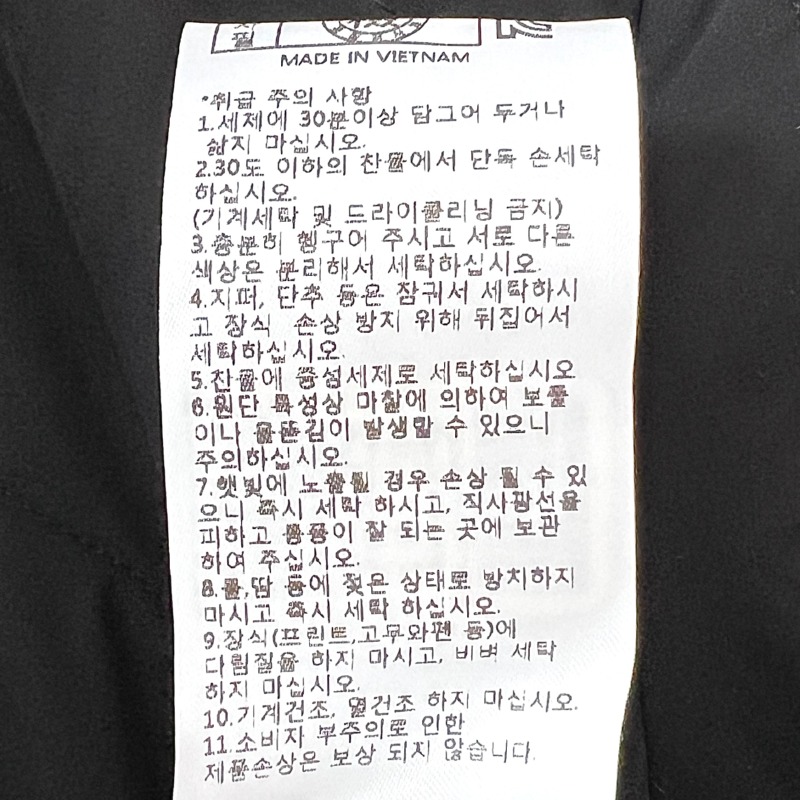 MADE IN VIETNAM
*취급 주의 사항
1.세제에 30분이상 담그어 두거나
삶지 마십시오.
2.30도 이하의 찬물에서 단독 손세탁
하십시오.
(기계세탁 및 드라이클리닝 금지)
3.충분히 헹구어 주시고 서로 다른
색상은 분리해서 세탁하십시오.
4.지퍼, 단추 등은 잠궈서 세탁하시
고 장식 손상 방지 위해 뒤집어서
세탁하십시오.
5.찬물에 중성세제로 세탁하십시오
6.원단 특성상 마찰에 의하여 보풀
이나 올뜯김이 발생할 수 있으니
주의하십시오.
7.햇빛에 노출될 경우 손상 될 수 있
으니 즉시 세탁 하시고, 직사광선을
피하고 통풍이 잘 되는 곳에 보관
하여 주십시오.
8.물,땀 등에 젖은 상태로 방치하지
마시고 즉시 세탁 하십시오.
9.장식(프린트,고무와펜 등)에
다림질을 하지 마시고, 비벼 세탁
하지 마십시오.
10.기계건조, 열건조 하지 마십시오.
11.소비자 부주의로 인한
제품손상은 보상 되지 않습니다.